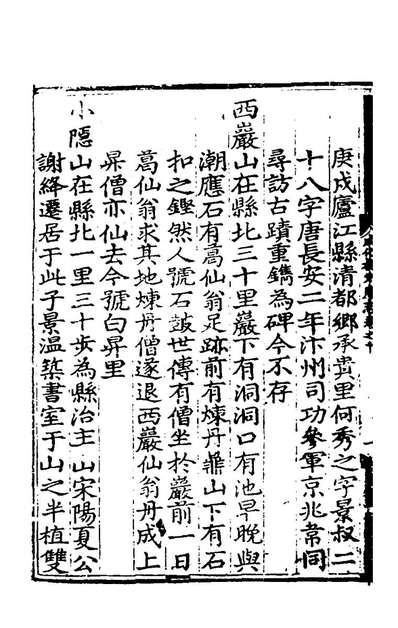 庚戌廬江縣清都鄉承貴里何秀之字景叔二
十八字唐長安二年汴州司功參軍京兆韋同
尋訪古蹟重鐫為碑今不存
西巖山在縣北三十里巖下有洞洞口有池早晚與
潮應石有葛仙翁足跡前有煉丹鼎山下有石
扣之鏗然人號石鼓世傳有僧坐於巖前一日
葛仙翁求其地煉丹僧遂退西巖仙翁丹成上
昇僧亦仙去今號白昇里
小隱山在縣北一里三十步為縣治主山宋陽夏公
謝絳遷居于此子景溫築書室于山之半植雙